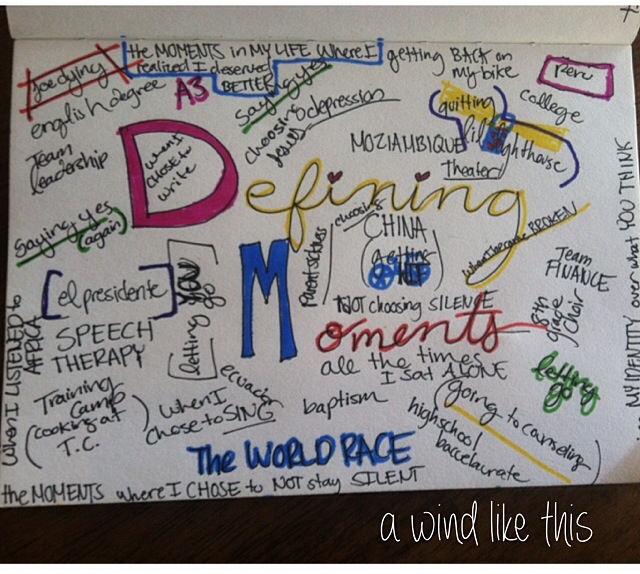 the MOMENTS in MY LIFE where I
realized I deserved
BETTER
getting BACK on
my bike
Peru
joe dying
english degree
A3
saying yes
choosing
Jesus
depression
quitting
college
lighthouse
Theater
MOZIAMBIQUE
Team
leadership
when I
CHOSE to
write
Defining
Moments
saying yes
(again)
choosing
CHINA
getting
HIT
Parent sickness
when I became BROKEN
Team
FINANCE
8th
grade
choir
MY IDENTITY over what YOU THINK
[el presidente]
letting go
YOU
NOT choosing SILENCE
SPEECH
THERAPY
all the times
I sat ALONE
letting
go
when I LISTENED to
AFRICA
Training
Camp
(cooking at
T.C.)
when I
chose to SING
ecuador
baptism
(going to counseling)
highschool
baccelaurate
The WORLD RACE
the MOMENTS where I CHOSE to NOT stay SILENT
a wind like this